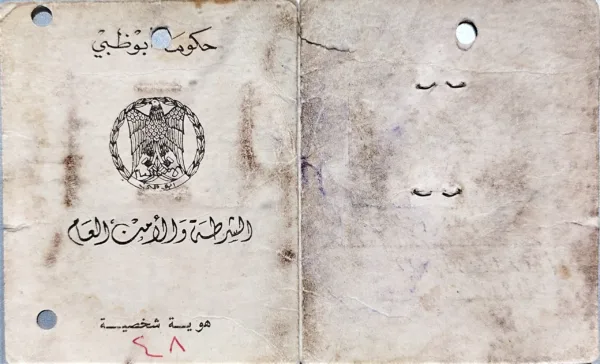 حكومة أبوظبي
أبو ظبي
الشرطة والأمن العام
هوية شخصية
٤٨